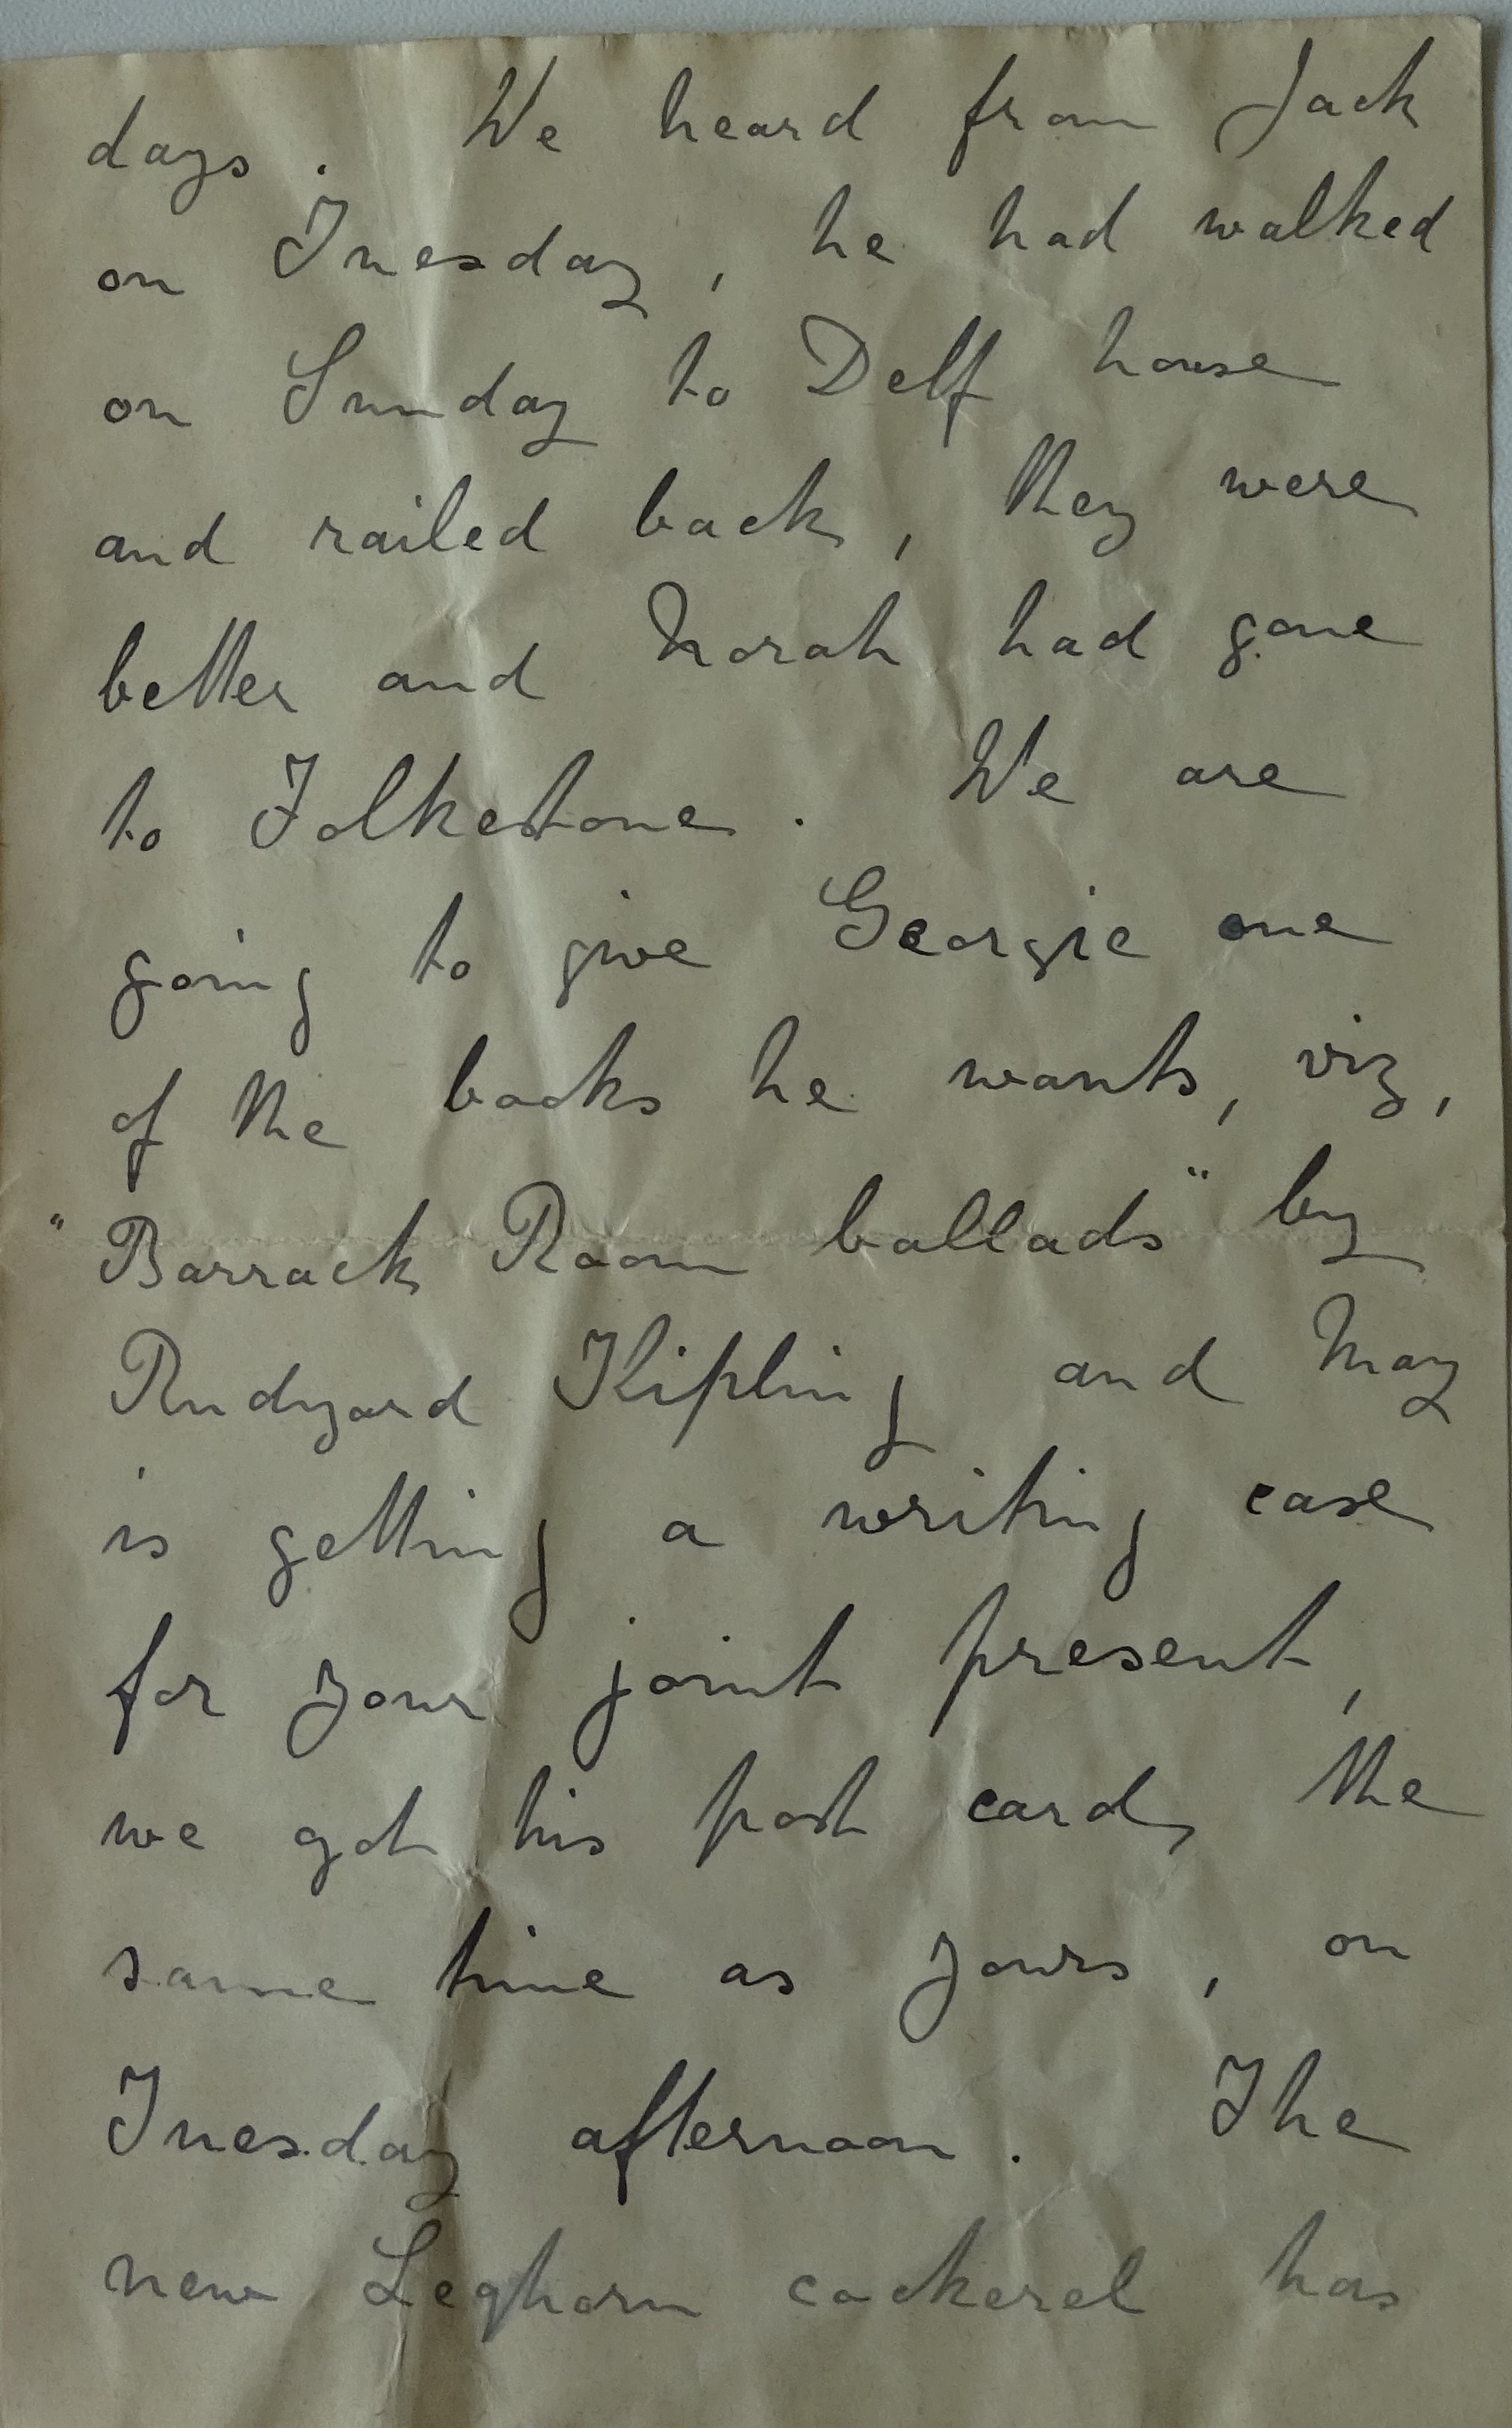 days. We heard from Jack
on Tuesday, he had walked
on Sunday to Delf house
and railed back, they were
better and Norah had gone
to Folkestone. We are
going to give Georgie one
of the books he wants, viz,
"Barrack Room ballads" by
Rudyard Kipling and May
is getting a writing case
for your joint present,
we got his post card, the
same time as yours, on
Tuesday afternoon. The
new Leghorn cockerel has